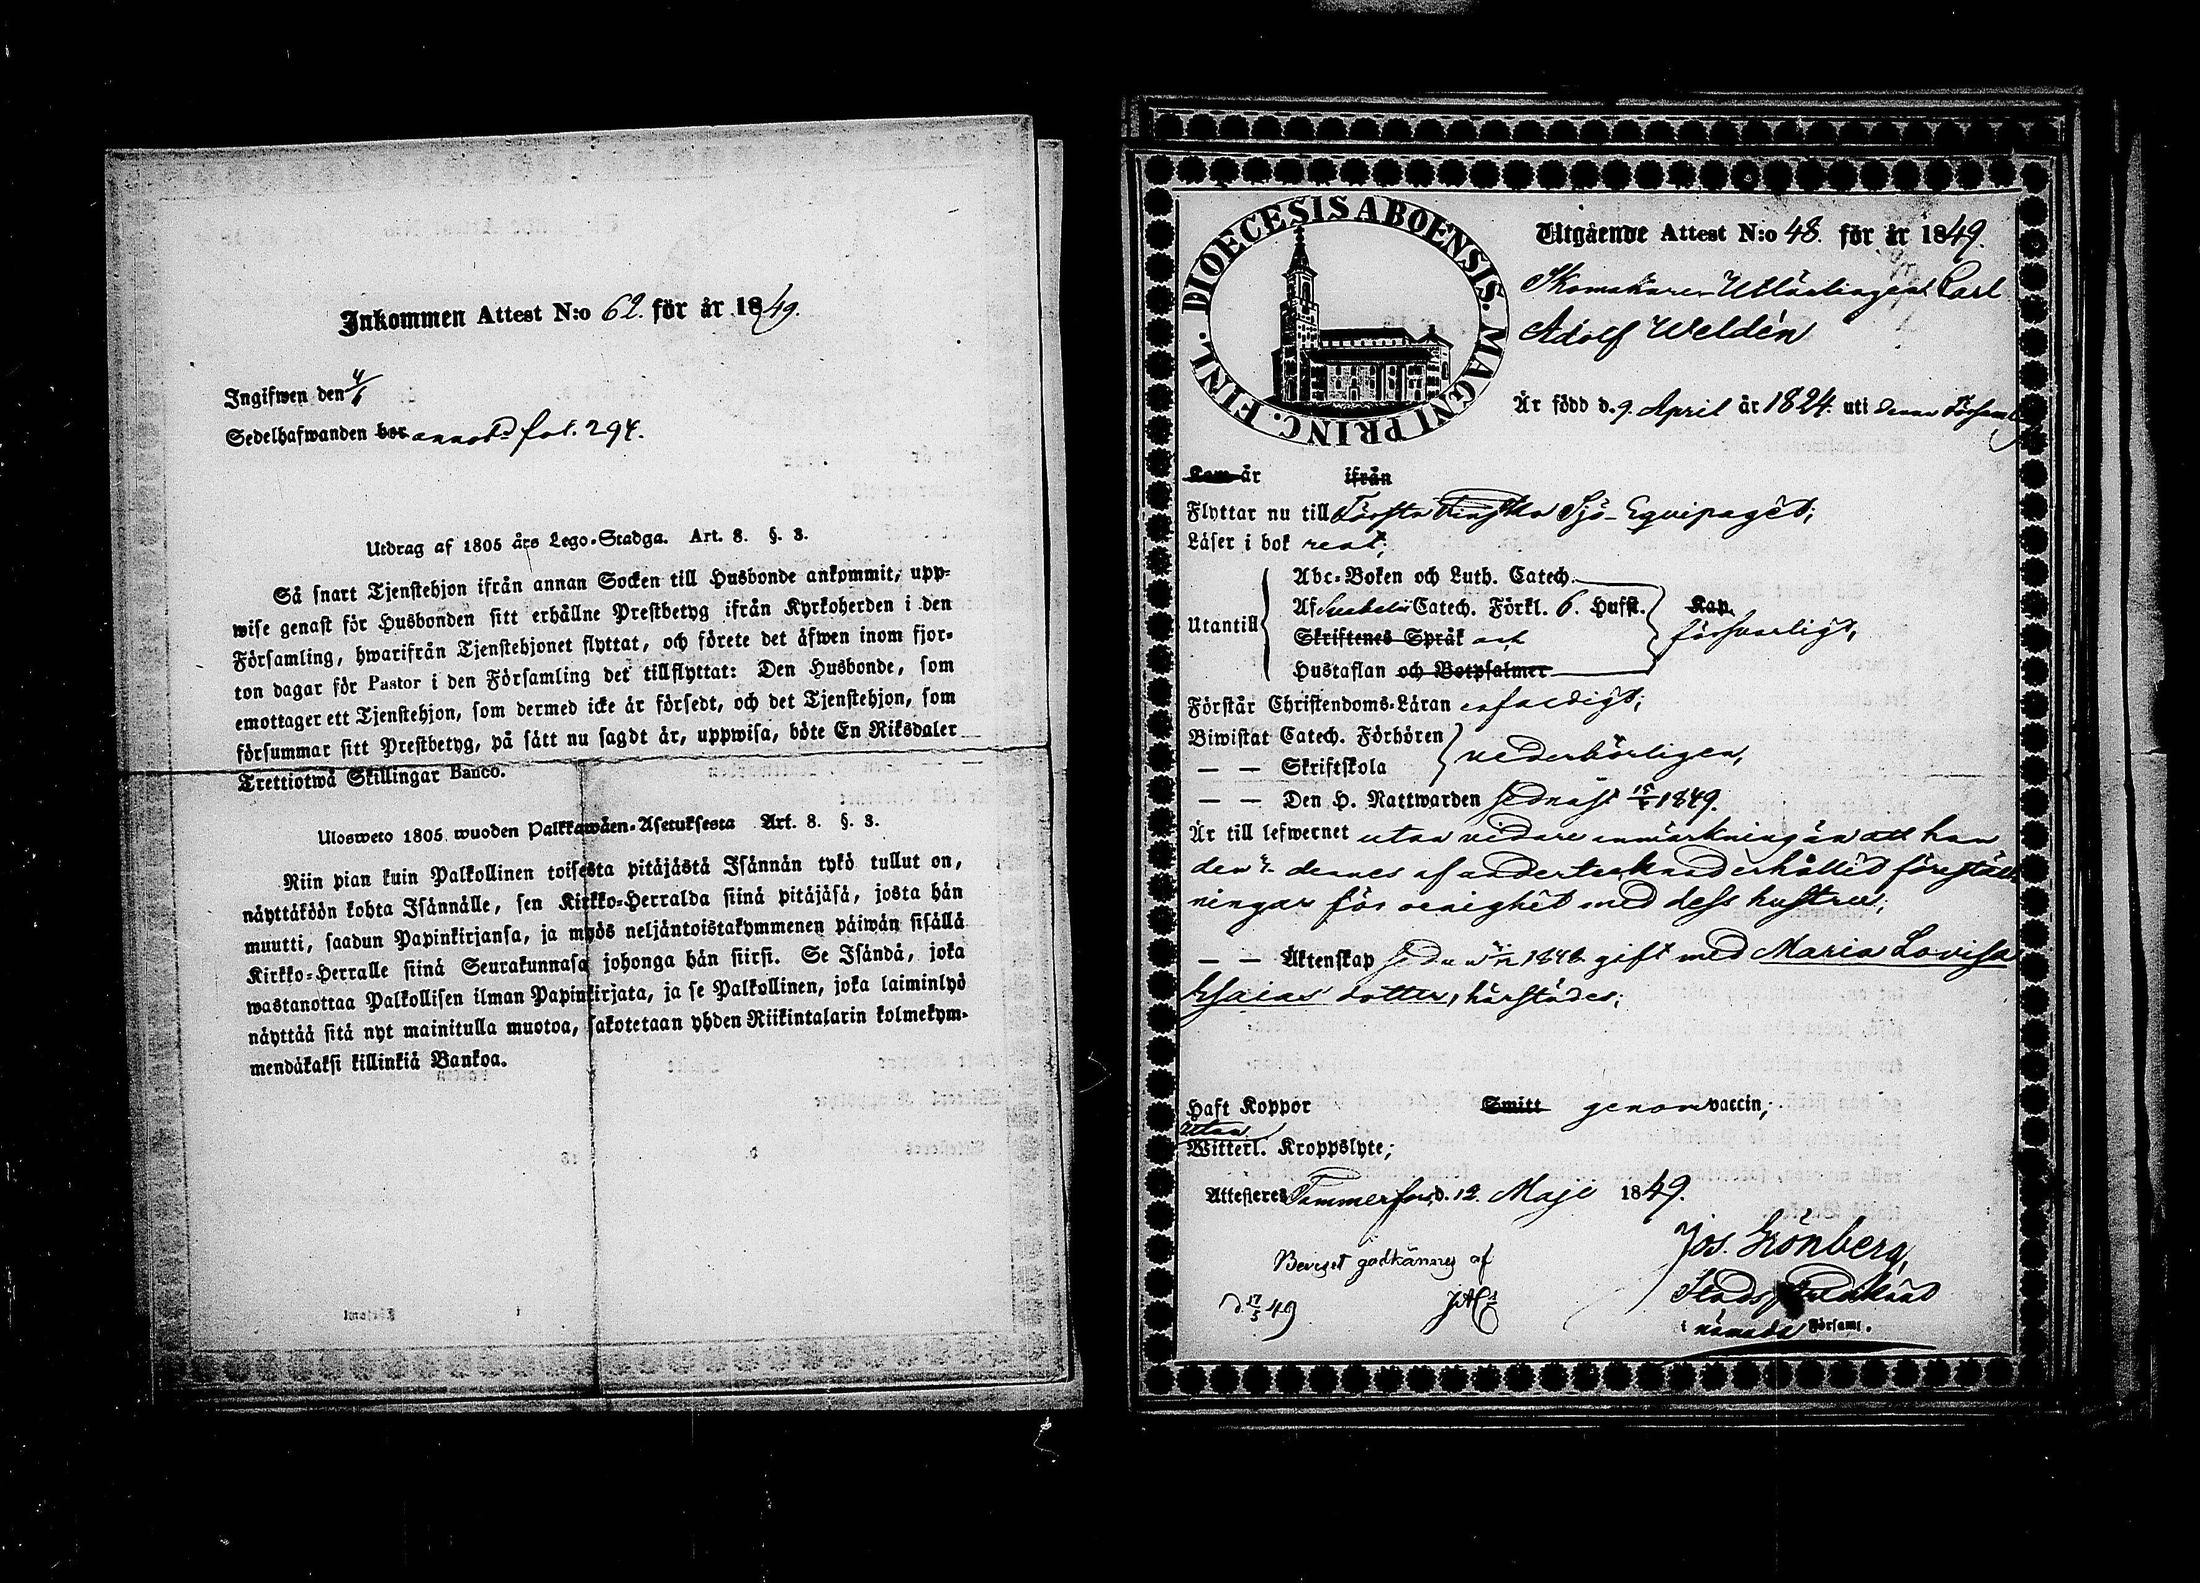 Inkommen Attest N:o 62. för år 1849.
Ingifwen den
Sedelhafwanden bor annot.d fol. 294.
Utdrag af 1805 års Lego-Stadga. Art. 8. §. 3.
Så snart Tjenstehjon ifrån annan Socken till Husbonde ankommit, upp-
wise genast för Husbonden sitt erhållne Prestbetyg ifrån Kyrkoherden i den
Församling, hwarifrån Tjenstehjonet flyttat, och förete det äfwen inom fjor-
ton dagar för Pastor i den Församling det tillflyttat: Den Husbonde, som
emottager ett Tjenstehjon, som dermed icke är försedt, och det Tjenstehjon, som
försummar sitt Prestbetyg, på sätt nu sagdt är, uppwisa, böte En Riksdaler
Trettiotwå Skillingar Banco.
Ulosweto 1805 wuoden Palkkawäen-Asetuksesta Art. 8. §. 3.
Niin pian kuin Palkollinen toisesta pitäjästä Isännän tykö tullut on,
näyttäköön kohta Isännälle, sen Kirkko-Herralda siinä pitäjäsä, josta hän
muutti, saadun Papinkirjansa, ja myös neljäntoistakymmenen päiwän sisällä
Kirkko-Herralle siinä Seurakunnasa johonga hän siirsi. Se Isändä, joka
wastanottaa Palkollisen ilman Papinkirjata, ja se Palkollinen, joka laiminlyö
näyttää sitä nyt mainitulla muotoa, sakotetaan yhden Riikintalarin kolmekym-
mendäkaksi killinkiä Bankoa.
DIOECESIS ABOENSIS. MAGNI PRINC. FINL.
Utgående Attest N:o 48. för år 1849.
Skomakare Utlärlingen Carl
Adolf Weldén
Är född d. 9. April år 1824. uti denna Församl
Kom år ifrån
Flyttar nu till Första Finska Sjö-Equipaget;
Läser i bok rent;
Abc-Boken och Luth. Catech.
Af Svebelii Catech. Förkl. 6. Hufst. Kap.
Utantill Skriftenes Språk och försvarligt,
Hustaflan och Botpsalmer
Förstår Christendoms-Läran enfaldigt;
Biwistat Catech. Förhören
— — Skriftskola vederbörligen,
— — Den H. Nattwarden sednast 1849.
Är till lefwernet utan vidare anmärkning än att han
den dennes af undertecknad erhållit föreställ-
ningar för oenighet med dess hustru;
— — Äktenskap sedan 1846 gift med Maria Lovisa
Esaias dotter, härstädes;
Haft Koppor Smitt genom vaccin;
utan
Witterl. Kroppslyte;
Attesteres Tammerfors, d. 12. Maji 1849.
Jos. Grönberg,
Beviset godkännes af
d. 17/5 49
Stads Predikant
i nämnda Församl.